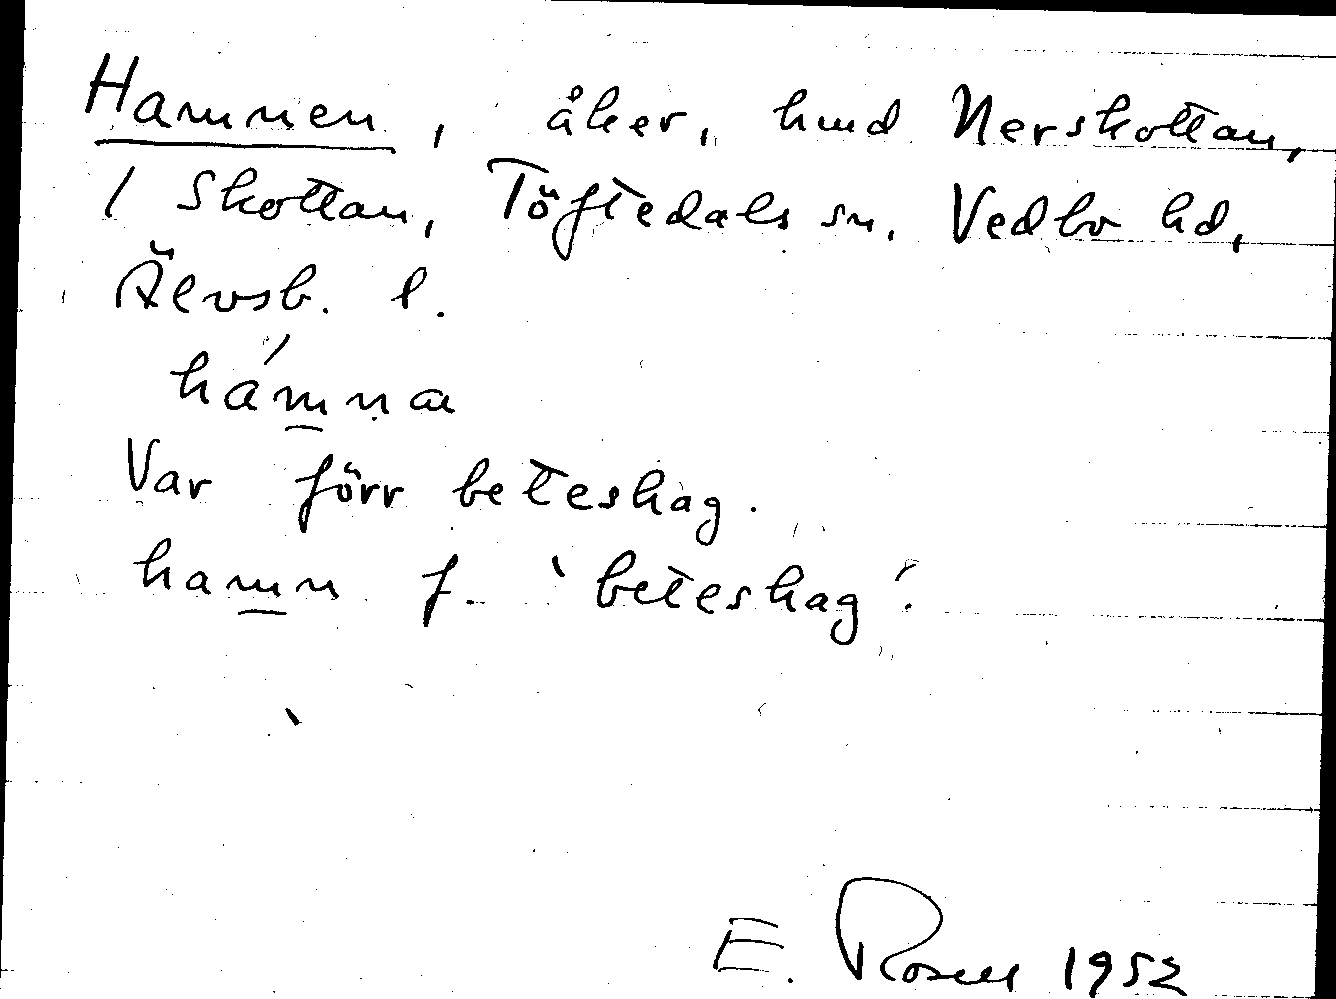 Hamnen, åker, hmd Nerskottan,
1 Skottan, Töftedals sn, Vedbo hd,
Älvsb. l.
hámna
Var förr beteshag.
hamn f. 'beteshag'.
E. Rosell 1952